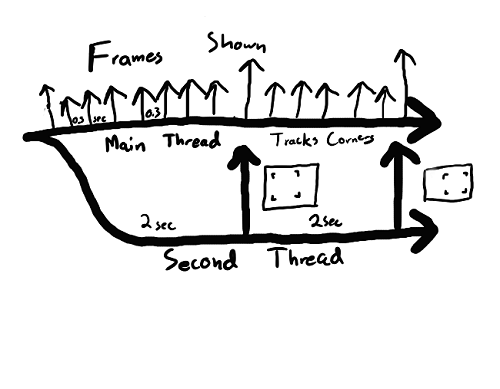 Frames
Shown
0.3 sec
0.3
Main Thread
Tracks Corners
2 sec
2 sec
Second Thread